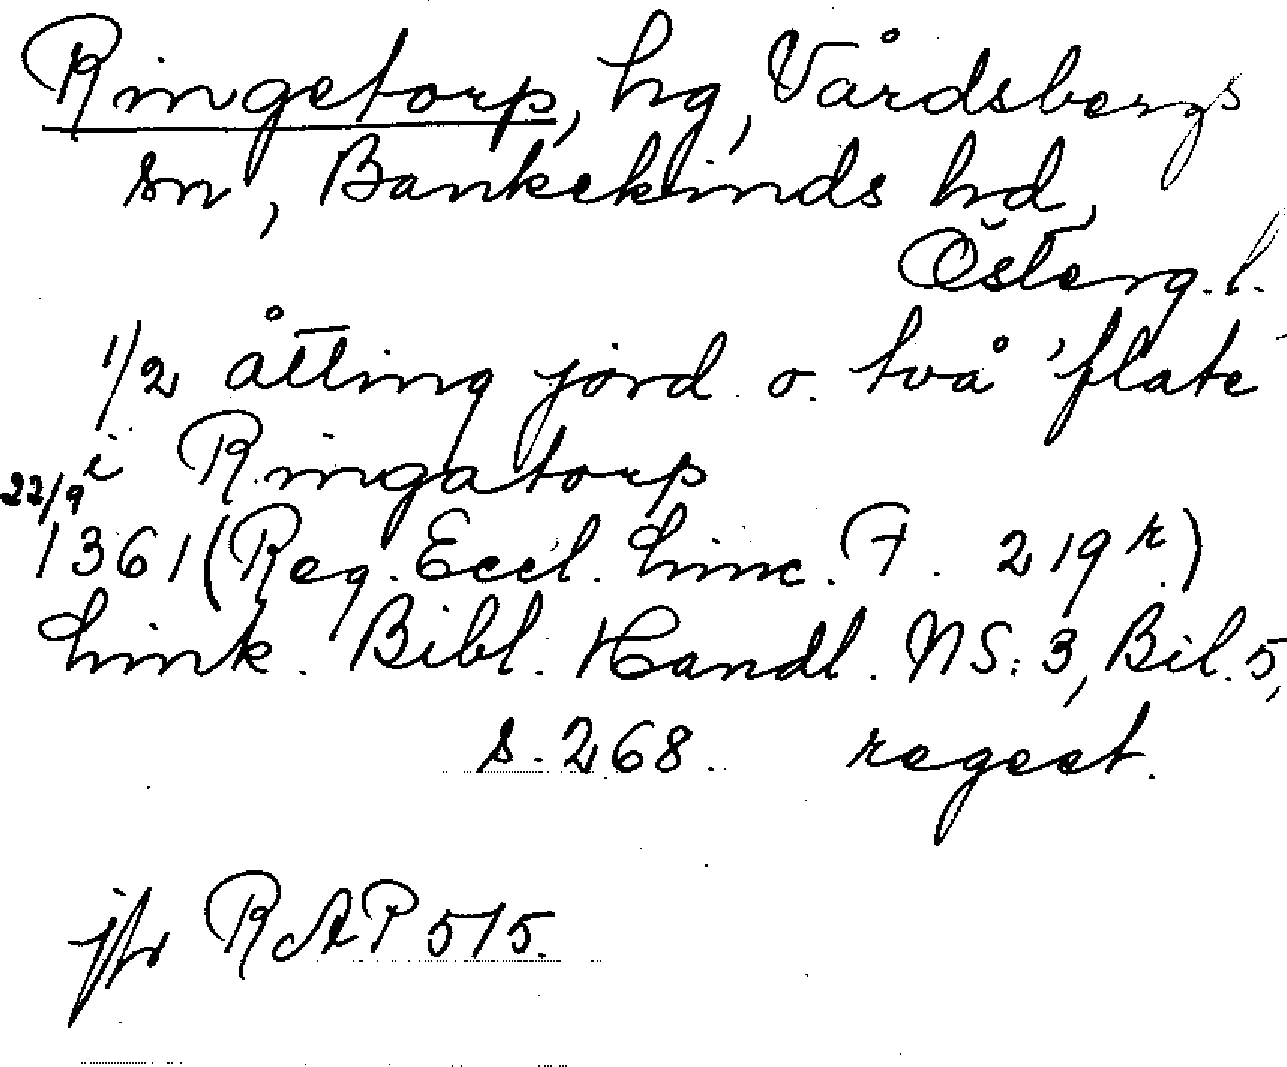 Ringetorp, hg, Vårdsbergs
sn, Bankekinds hd,
Österg.l.
1/2 åtting jord o. två 'flate'
i Ringatorp
22/9
1361 (Reg. Eccl. Linc. F. 219r.)
Link. Bibl. Handl. NS: 3, Bil. 5,
s. 268. regest.
jfr RAP 515.